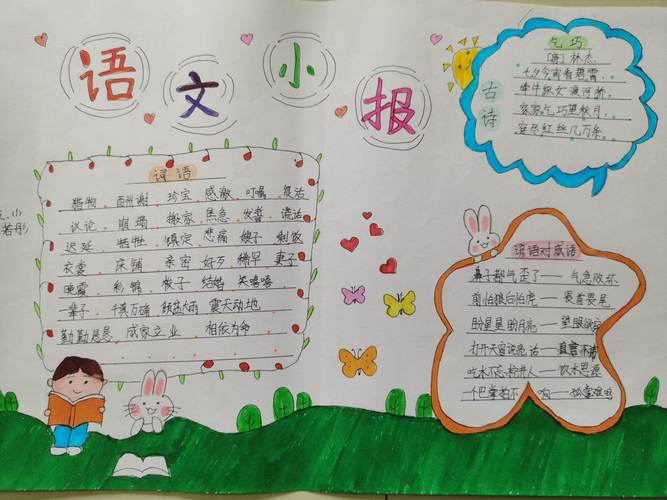 语文小报
乞巧
[唐]林杰
七夕今宵看碧霄,
牵牛织女渡河桥。
家家乞巧望秋月,
穿尽红丝几万条。
古诗
词语
猎物 酬谢 珍宝 感激 叮嘱 复活
议论 崩塌 搬家 焦急 发誓 谎话
迟延 牺牲 镇定 悲痛 嫂子 剩饭
衣裳 床铺 亲密 好歹 稍早 妻子
晚霞 彩锦 梭子 结婚 笑嘻嘻
一辈子 千真万确 倾盆大雨 震天动地
勤勤恳恳 成家立业 相依为命
谚语对成语
鼻子都气歪了——气急败坏
前怕狼后怕虎——畏首畏尾
盼星星盼月亮——望眼欲穿
打开天窗说亮话——直言不讳
吃水不忘挖井人——饮水思源
一个巴掌拍不响——孤掌难鸣